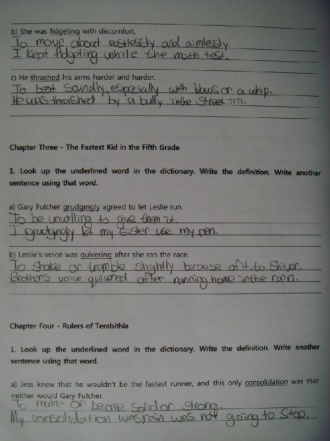 b) She was fidgeting with discomfort.
To move about restlessly and aimlessly
I kept fidgeting while the math test.
c) He thrashed his arms harder and harder.
To beat soundly, especially with blows or a whip.
He was thrashed by a bully in the street
Chapter Three - The Fastest Kid in the Fifth Grade
1. Look up the underlined word in the dictionary. Write the definition. Write another
sentence using that word.
a) Gary Fulcher grudgingly agreed to let Leslie run.
To be unwilling to give them it.
I grudgingly let my sister use my pen.
b) Leslie's voice was quivering after she ran the race.
To shake or tremble slightly because of it. to Shiver.
brothers voice quivered after running home in the rain.
Chapter Four - Rulers of Terabithia
1. Look up the underlined word in the dictionary. Write the definition. Write another
sentence using that word.
a) Jess knew that he wouldn't be the fastest runner, and this only consolidation was that
neither would Gary Fulcher.
To make or become solid or strong.
My consolidation was rain was not going to stop.